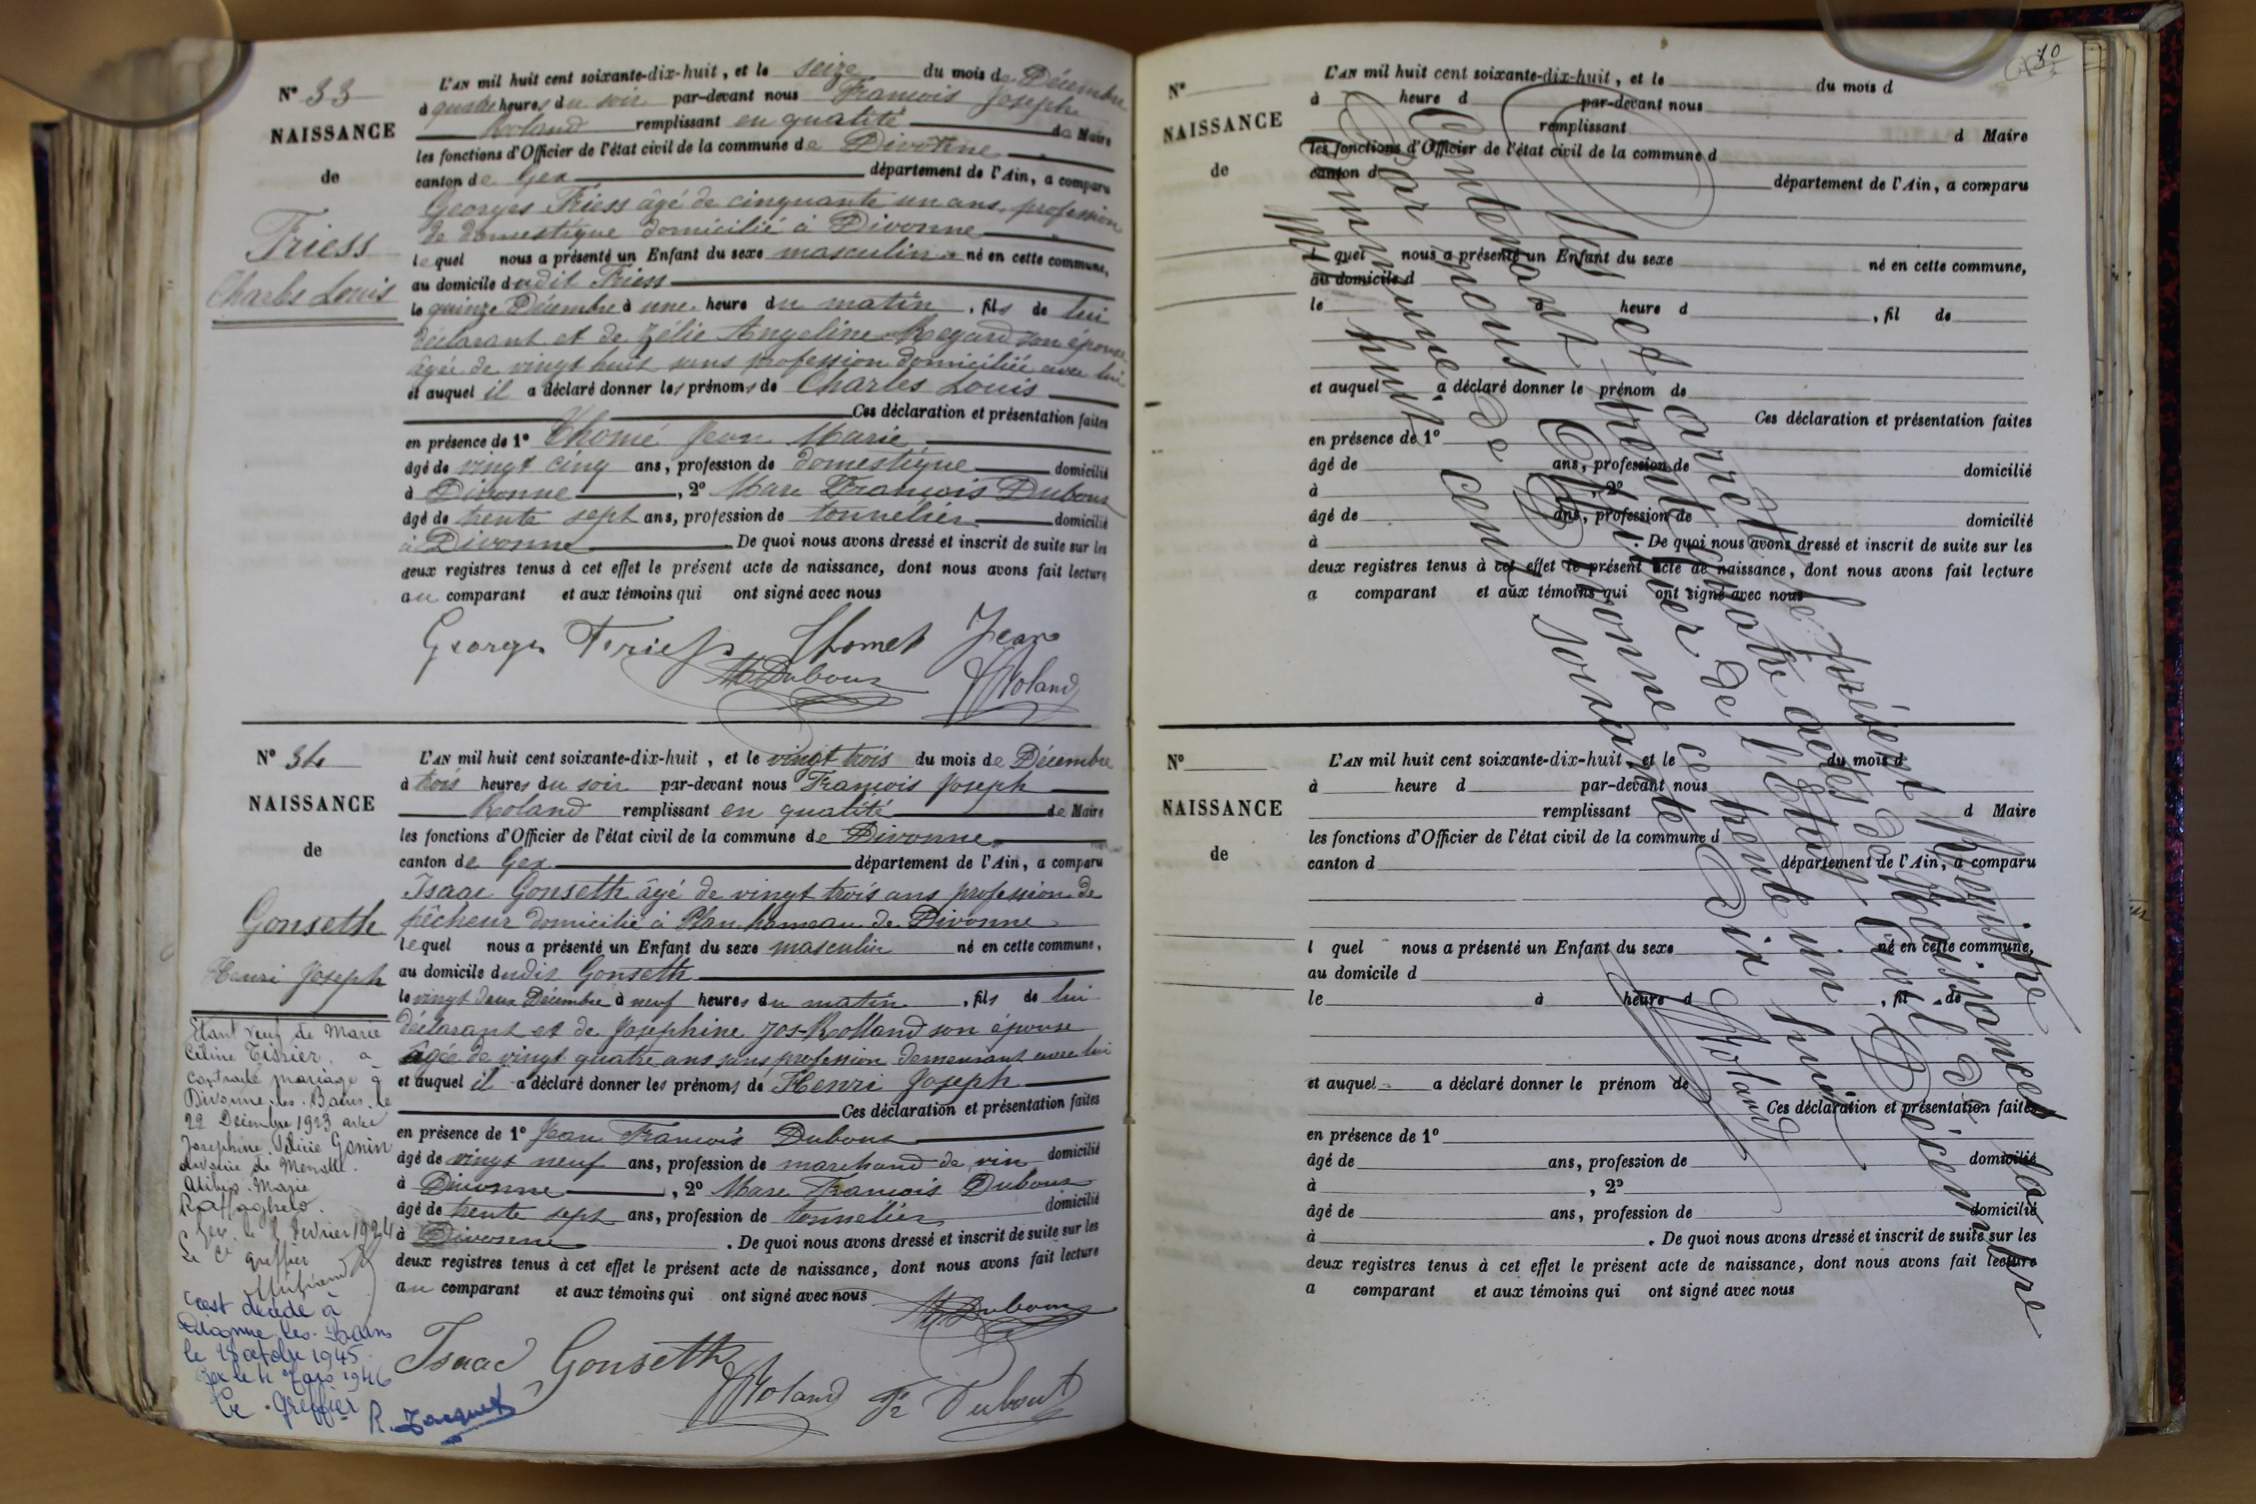 N° 33
NAISSANCE
de
Friess
Charles Louis
L'AN mil huit cent soixante-dix-huit, et le seize du mois de Décembre
à quatre heures du soir par-devant nous François Joseph
Roland remplissant en qualité de Maire
les fonctions d'Officier de l'état civil de la commune de Divonne
canton de Gex département de l'Ain, a comparu
Georges Friess âgé de cinquante un ans, profession
de domestique domicilié à Divonne
lequel nous a présenté un Enfant du sexe masculin né en cette commune,
au domicile dudit Friess
le quinze Décembre à une heure du matin, fils de lui
déclarant et de Zélie Angeline Regard son épouse
âgée de vingt huit sans profession domiciliée avec lui
et auquel il a déclaré donner les prénoms de Charles Louis
Ces déclaration et présentation faites
en présence de 1° Thomé Jean Marie
âgé de vingt cinq ans, profession de domestique domicilié
à Divonne, 2° Marc François Dubout
âgé de trente sept ans, profession de tonnelier domicilié
à Divonne De quoi nous avons dressé et inscrit de suite sur les
deux registres tenus à cet effet le présent acte de naissance, dont nous avons fait lecture
au comparant et aux témoins qui ont signé avec nous
Georges Friess Thomet Jean
Dubout Roland
N° 34
NAISSANCE
de
Gonseth
Henri Joseph
L'AN mil huit cent soixante-dix-huit, et le vingt trois du mois de Décembre
à trois heures du soir par-devant nous François Joseph
Roland remplissant en qualité de Maire
les fonctions d'Officier de l'état civil de la commune de Divonne
canton de Gex département de l'Ain, a comparu
Isaac Gonseth âgé de vingt trois ans profession de
pêcheur domicilié à Plan hameau de Divonne
lequel nous a présenté un Enfant du sexe masculin né en cette commune,
au domicile dudit Gonseth
le vingt deux Décembre à neuf heures du matin, fils de lui
déclarant et de Joséphine Jos-Rolland son épouse
âgée de vingt quatre ans sans profession demeurant avec lui
et auquel il a déclaré donner les prénoms de Henri Joseph
Ces déclaration et présentation faites
en présence de 1° Jean François Dubout
âgé de vingt neuf ans, profession de marchand de vin domicilié
à Divonne, 2° Marc François Dubout
âgé de trente sept ans, profession de tonnelier domicilié
à Divonne. De quoi nous avons dressé et inscrit de suite sur les
deux registres tenus à cet effet le présent acte de naissance, dont nous avons fait lecture
au comparant et aux témoins qui ont signé avec nous
Dubout
Isaac Gonseth
Roland Dubout
Etant veuf de Marie
Céline Tissier a
contracté mariage à
Divonne-les-Bains le
22 Décembre 1923 avec
Joséphine Gonin
divorcée de
Marie
Gex, le Février 1924
Le greffier
est décédé à
Divonne les-Bains
le octobre 1945
Gex le 1946
Le Greffier
R. Jacquet
30
N°
NAISSANCE
de
L'AN mil huit cent soixante-dix-huit, et le du mois d
à heure d par-devant nous
remplissant d Maire
les fonctions d'Officier de l'état civil de la commune d
canton d département de l'Ain, a comparu
l quel nous a présenté un Enfant du sexe né en cette commune,
au domicile d
le à heure d , fil de
et auquel a déclaré donner le prénom de
Ces déclaration et présentation faites
en présence de 1°
âgé de ans, profession de domicilié
à , 2°
âgé de ans, profession de domicilié
à . De quoi nous avons dressé et inscrit de suite sur les
deux registres tenus à cet effet le présent acte de naissance, dont nous avons fait lecture
a comparant et aux témoins qui ont signé avec nous
N°
NAISSANCE
de
L'AN mil huit cent soixante-dix-huit, et le du mois d
à heure d par-devant nous
remplissant d Maire
les fonctions d'Officier de l'état civil de la commune d
canton d département de l'Ain, a comparu
l quel nous a présenté un Enfant du sexe né en cette commune,
au domicile d
le à heure d , fil de
et auquel a déclaré donner le prénom de
Ces déclaration et présentation faites
en présence de 1°
âgé de ans, profession de domicilié
à , 2°
âgé de ans, profession de domicilié
à . De quoi nous avons dressé et inscrit de suite sur les
deux registres tenus à cet effet le présent acte de naissance, dont nous avons fait lecture
a comparant et aux témoins qui ont signé avec nous
Clos et arrêté le présent Registre
Contenant trente quatre actes de Naissances
Par nous Officier de l'Etat Civil de la
Commune de Divonne ce trente un Décembre
Mil huit cent soixante Dix huit
Roland